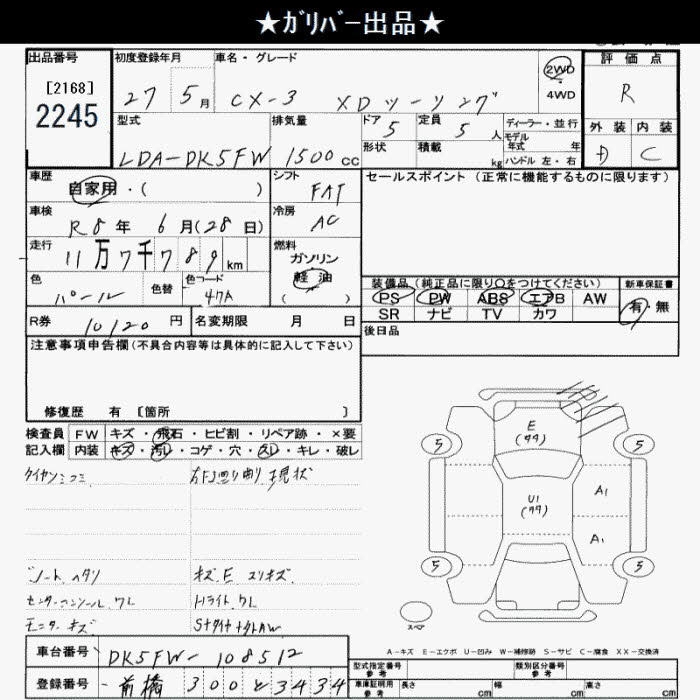 ★ｶﾞﾘﾊﾞｰ出品★
出品番号
[2168]
2245
初度登録年月
27 5月
車名・グレード
CX-3 XDツーリング
2WD
4WD
評価点
R
型式
LDA-DK5FW
排気量
1500cc
ドア
5
定員
5人
ディーラー・並行
モデル
年式 年
形状
積載
kg
ハンドル 左・右
外装 内装
D C
車歴
自家用・( )
シフト
FAT
セールスポイント (正常に機能するものに限ります)
車検
R8年 6月(28日)
冷房
AC
走行
11万7千789km
燃料
ガソリン
軽油
( )
色
パール
色替
色コード
47A
装備品 (純正品に限り○をつけてください)
新車保証書
PS PW ABS エアB AW
SR ナビ TV カワ
有・無
R券
10120円
名変期限 月 日
後日品
注意事項申告欄(不具合内容等は具体的に記入して下さい)
修復歴 有 [箇所 ]
検査員
記入欄
FW キズ・飛石・ヒビ割・リペア跡・×要
内装 キズ・汚レ・コゲ・穴・スレ・キレ・破レ
現状
シートヘタリ
キズ.E スリキズ
センターコンソールワレ
Hライトワレ
モニターキズ
E
(ササ)
U1
(ササ)
A1
A1
5
5
5
5
スペア
A-キズ E-エクボ U-凹み W-補修跡 S-サビ C-腐食 XX-交換済
車台番号
DK5FW-108512
登録番号
前橋300と3434
型式指定番号
参考
類別区分番号
参考
車庫証明用
参考
長さ cm
幅 cm
高さ cm